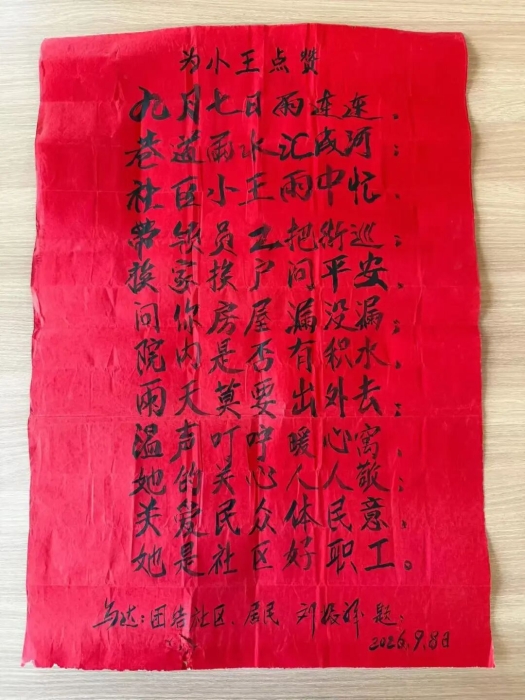 为小王点赞
九月七日雨连连。
巷道雨水汇成河；
社区小王雨中忙、
带领员工把街巡；
挨家挨户问平安、
问你房屋漏没漏；
院内是否有积水、
雨天莫要出外去；
温声叮咛暖心窝
她的关心人人敬、
关爱民众体民意
她是社区好职工。
乌达：团结社区、居民 刘 题：
2026.9.8日